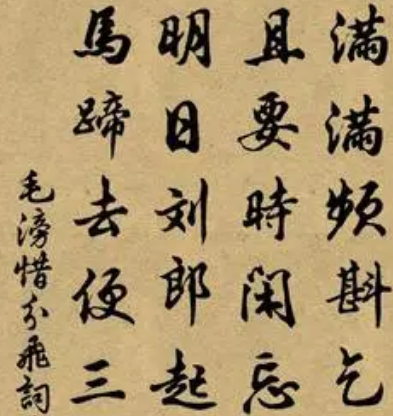 滿滿頻斟乞
且要時閑忘
明日刘郎起
馬蹄去便三
毛滂惜分飛詞